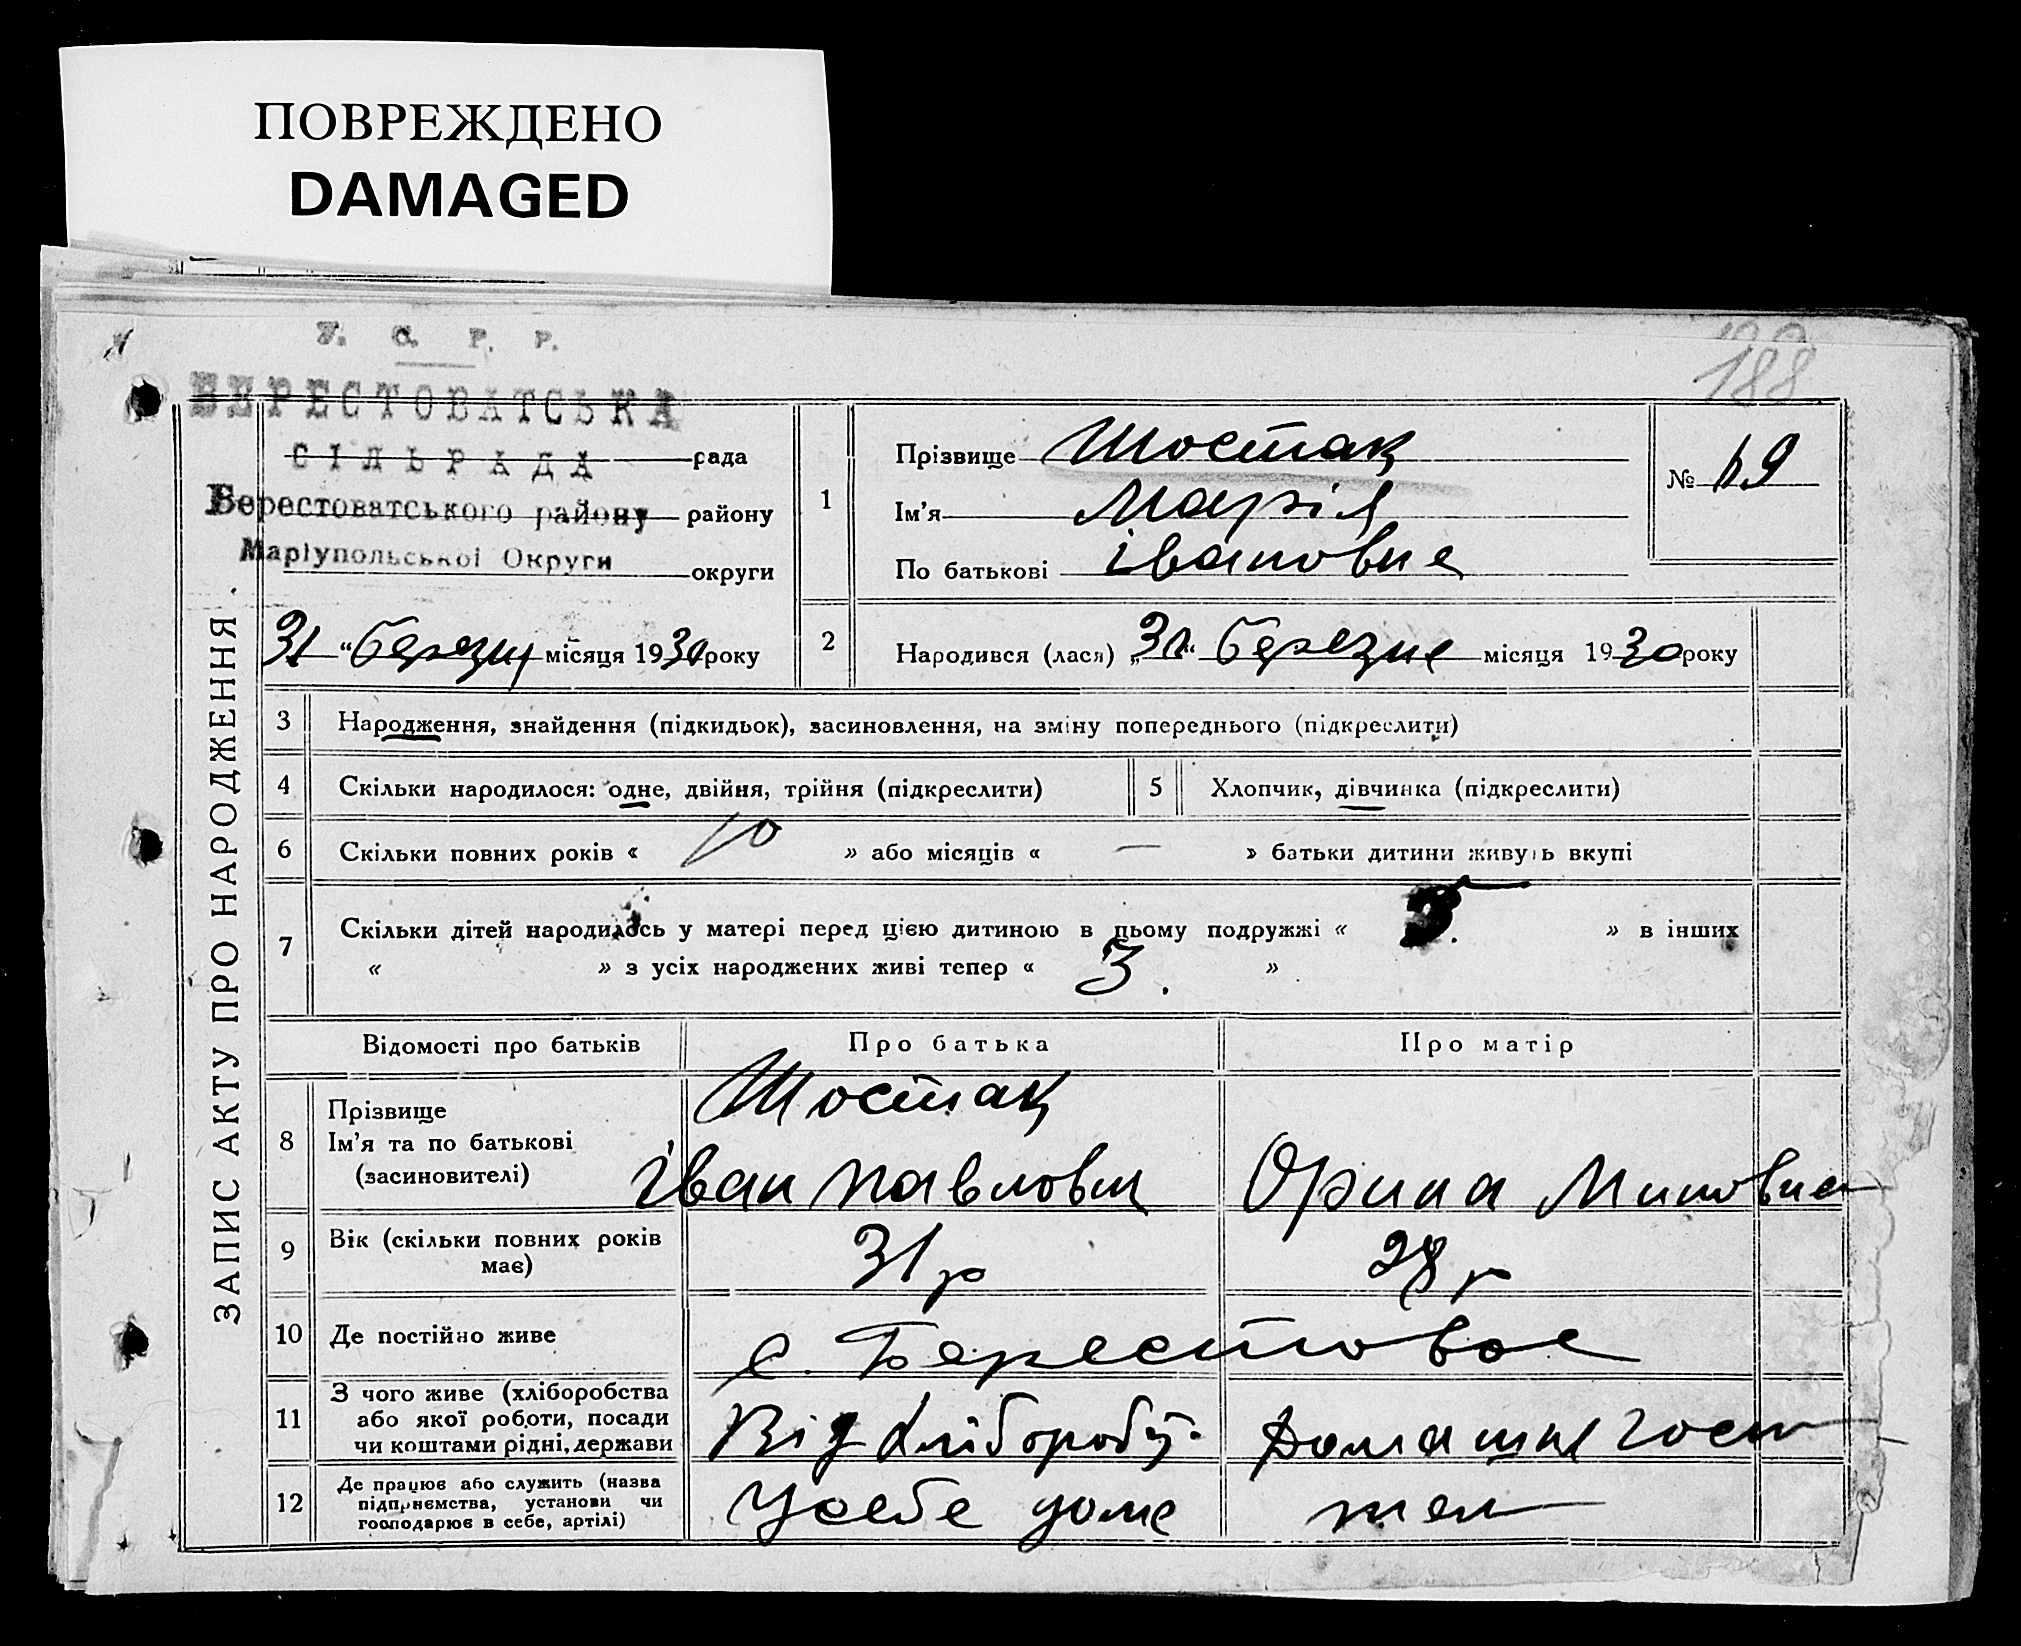 ПОВРЕЖДЕНО
DAMAGED
У. С. Р. Р.
188
БЕРЕСТОВАТСЬКА
СІЛЬРАДА рада
Берестоватського району району
Маріупольської Округи
округи
31 "березня місяця 1930 року
ЗАПИС АКТУ ПРО НАРОДЖЕННЯ.
1
Прізвище Шостак
Ім'я Марія
По батькові івановна
№ 69
2 Народився (лася) „31" березня місяця 1930 року
3 Народження, знайдення (підкидьок), засиновлення, на зміну попереднього (підкреслити)
4 Скільки народилося: одне, двійня, трійня (підкреслити) 5 Хлопчик, дівчинка (підкреслити)
6 Скільки повних років « 10 » або місяців « — » батьки дитини живуть вкупі
7 Скільки дітей народилось у матері перед цією дитиною в цьому подружжі « » в інших
« » з усіх народжених живі тепер « 3. »
Відомості про батьків Про батька Про матір
8 Прізвище
Ім'я та по батькові
(засиновителі)
Шостак
іван павлови Орина
9 Вік (скільки повних років
має)
31 р 28 р
10 Де постійно живе с. Берестовое
11 З чого живе (хліборобства
або якої роботи, посади
чи коштами рідні, держави
Від хлібороб. Домашне госп
12 Де працює або служить (назва
підприємства, установи чи
господарює в себе, артілі)
У себе доме теж